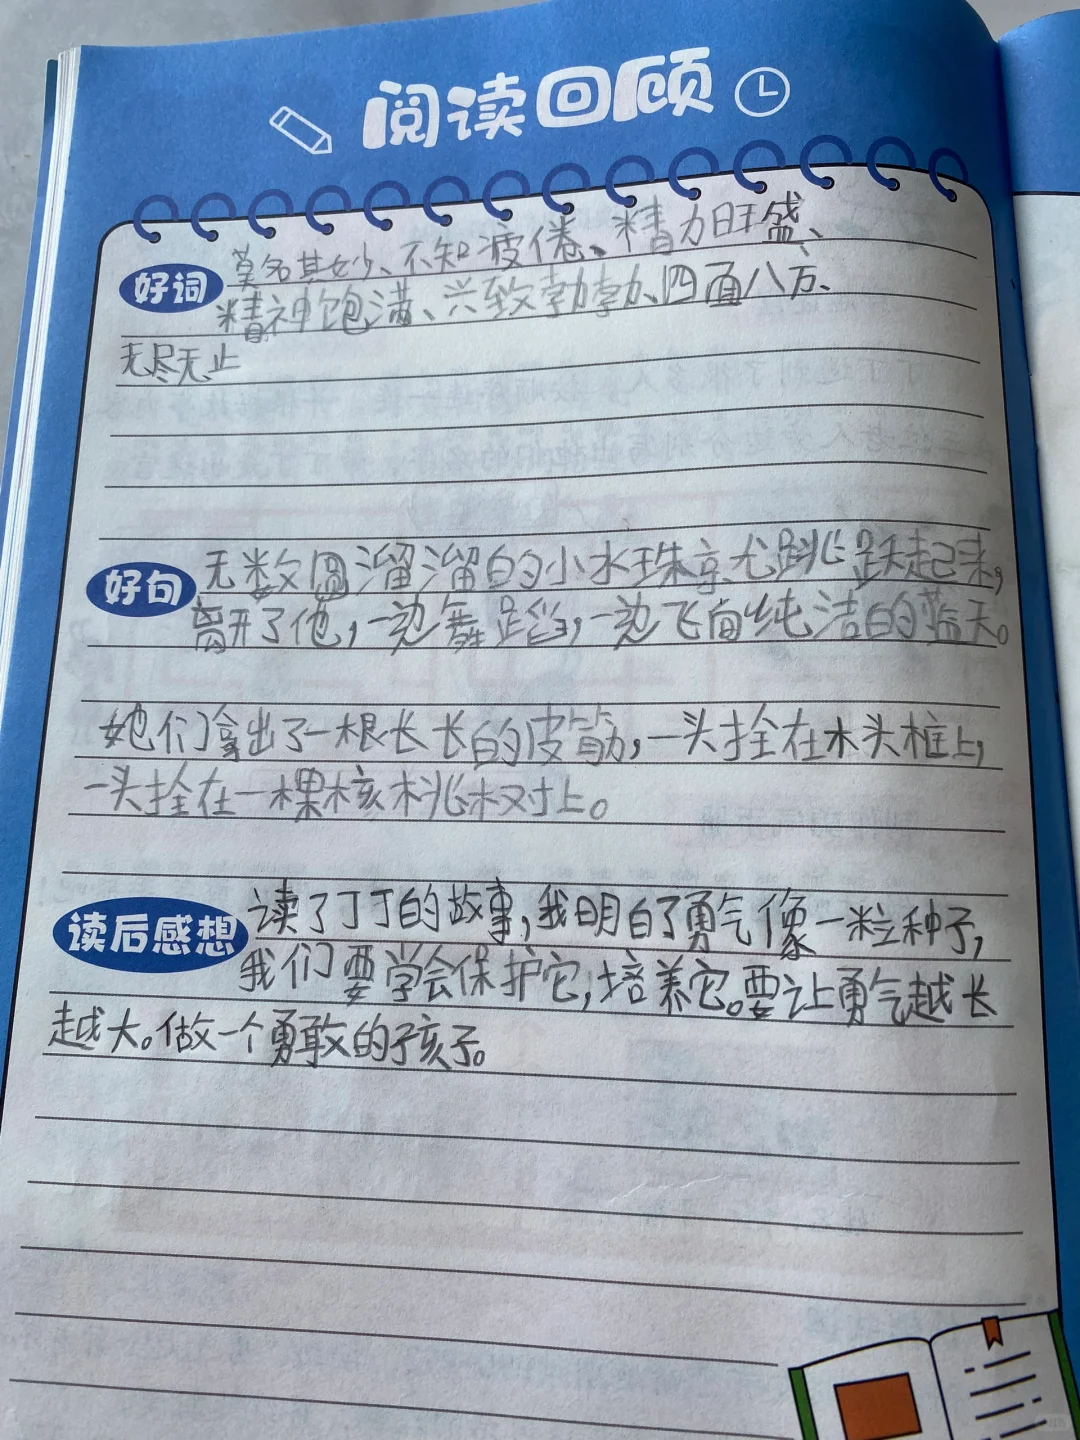 阅读回顾
好词 莫名其妙、不知疲倦、精力旺盛、
精神饱满、兴致勃勃、四面八方、
无尽无止
好句 无数圆溜溜的小水珠就跳跃起来,
离开了他,一边舞蹈,一边飞向纯洁的蓝天。
她们拿出了一根长长的皮筋,一头拴在木头桩上,
一头拴在一棵核桃树上。
读后感想 读了丁丁的故事,我明白了勇气像一粒种子,
我们要学会保护它,培养它。要让勇气越长
越大。做一个勇敢的孩子。